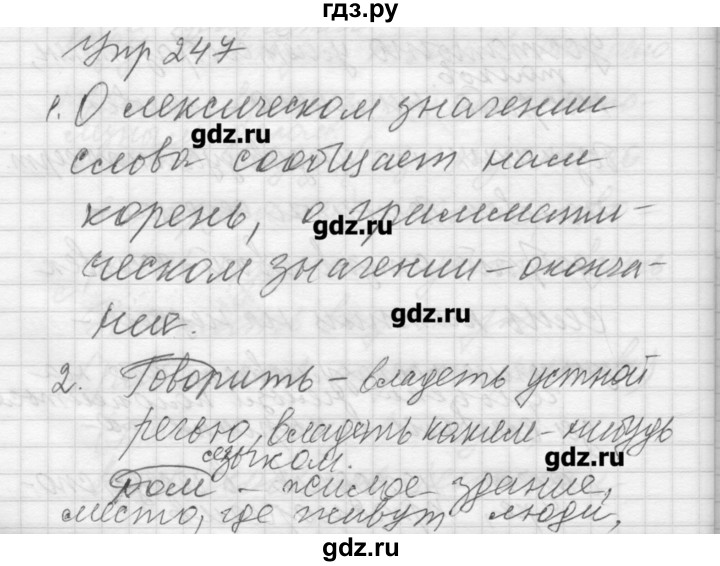 гдз.ру
Упр 247
1. О лексическом значении
gdz.ru
слова сообщает нам
корень, о граммати-
gdz.ru
ческом значении - оконча-
ние.
gdz.ru
2. Говорить - владеть устной
речью, владеть каким-нибудь
языком.
gdz.ru
Дом - жилое здание,
место, где живут люди,
gdz.ru